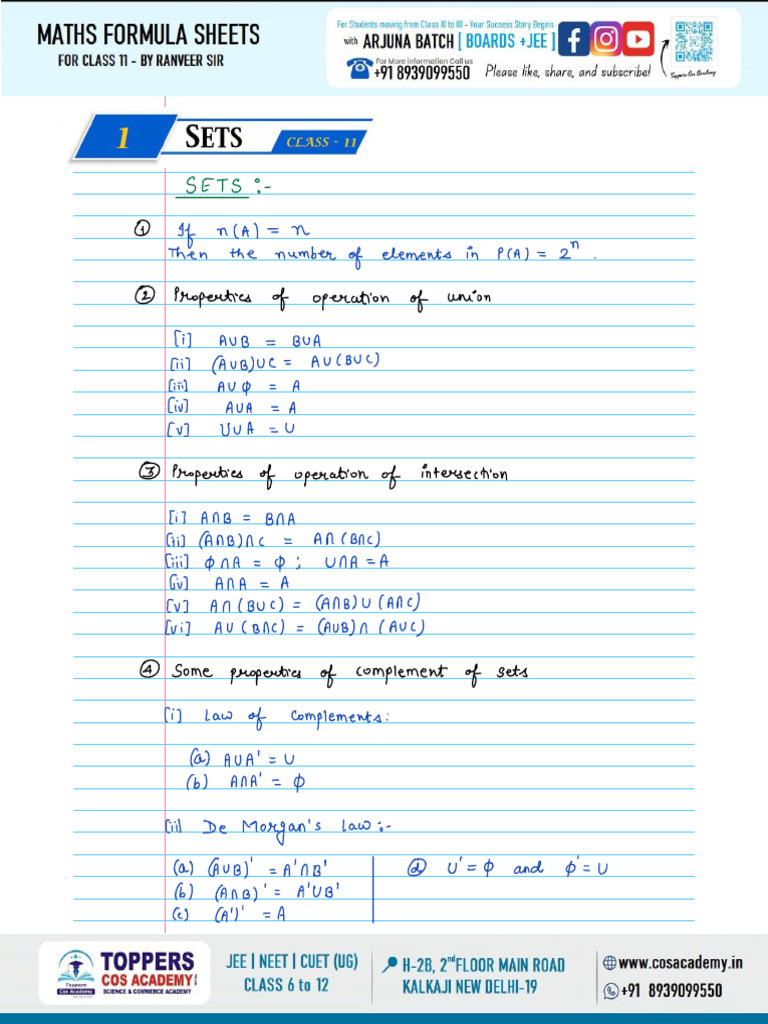 MATHS FORMULA SHEETS
FOR CLASS 11 - BY RANVEER SIR
For Students moving from Class XI to XII - Your Success Story Begins
with ARJUNA BATCH [ BOARDS +JEE ]
For More information Call us
+91 8939099550
Please like, share, and subscribe!
Toppers Cos Academy
1 SETS CLASS - 11
SETS :-
① If n(A) = n
Then the number of elements in P(A) = 2ⁿ .
② Properties of operation of union
[i] A∪B = B∪A
[ii] (A∪B)∪C = A∪(B∪C)
[iii] A∪ϕ = A
[iv] A∪A = A
[v] U∪A = U
③ Properties of operation of intersection
[i] A∩B = B∩A
[ii] (A∩B)∩C = A∩(B∩C)
[iii] ϕ∩A = ϕ ; U∩A = A
[iv] A∩A = A
[v] A∩(B∪C) = (A∩B)∪(A∩C)
[vi] A∪(B∩C) = (A∪B)∩(A∪C)
④ Some properties of complement of sets
[i] Law of complements:
(a) A∪A' = U
(b) A∩A' = ϕ
[ii] De Morgan's Law:-
(a) (A∪B)' = A'∩B'
(b) (A∩B)' = A'∪B'
(c) (A')' = A
ⓓ U' = ϕ and ϕ' = U
Toppers
Cos Academy
TOPPERS
COS ACADEMY
SCIENCE & COMMERCE ACADEMY
JEE | NEET | CUET (UG)
CLASS 6 to 12
H-2B, 2nd FLOOR MAIN ROAD
KALKAJI NEW DELHI-19
www.cosacademy.in
+91 8939099550